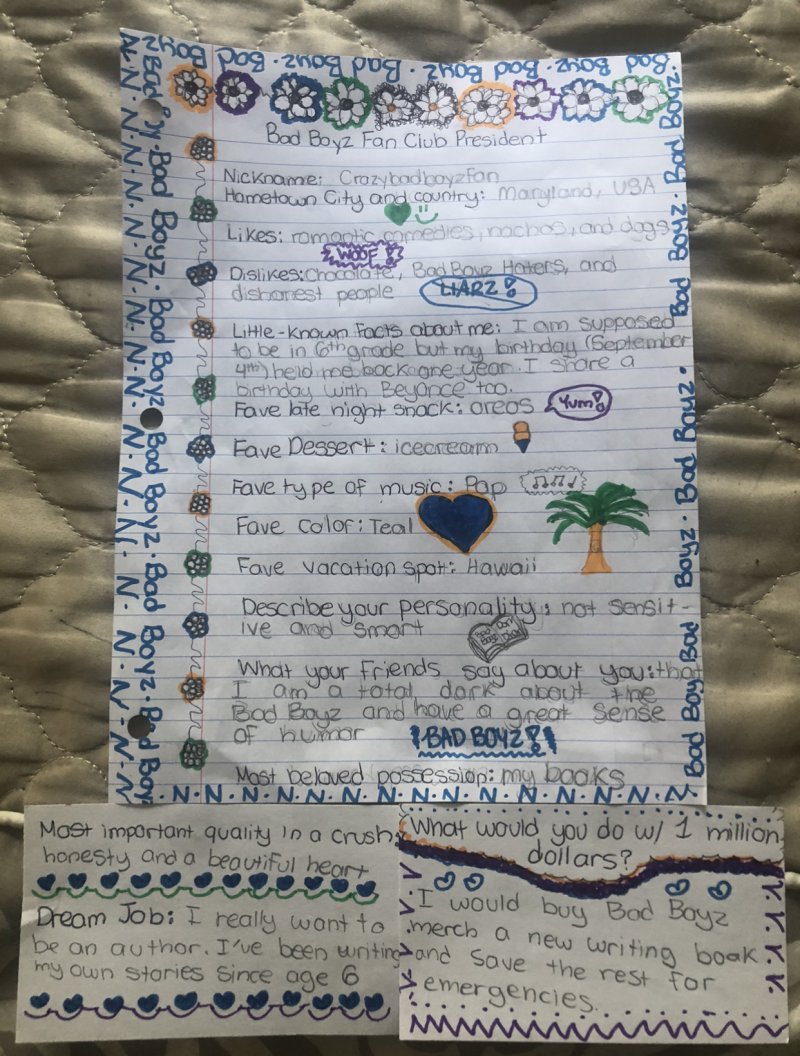 Bad Boyz · Bad Boyz · Bad Boyz · Bad Boyz · Bad
Bad Boyz Fan Club President
Nickname: Crazybadboyzfan
Hometown City and country: Maryland, USA
Likes: romantic comedies, nachos, and dogs
WOOF!
Dislikes: chocolate, Bad Boyz Haters, and
dishonest people
LIARZ!
Little-known facts about me: I am supposed
to be in 6th grade but my birthday (September
4th) held me back one year. I share a
birthday with Beyonce too.
Fave late night snack: oreos
Yum!
Fave Dessert: icecream
Fave type of music: Pop
Fave color: Teal
Fave vacation spot: Hawaii
Describe your personality: not sensit-
ive and smart
What your friends say about you: that
I am a total dork about the
Bad Boyz and have a great sense
of humor
BAD BOYZ!
Most beloved possession: my books
N · N · N · N · N · N · N · N · N · N · N · N · N
Bad Boyz · Bad Boyz · Bad Boyz · Bad Boyz · Bad Boy
Bad Boyz · Bad Boyz · Bad Boyz · Bad Boyz
Most important quality in a crush:
honesty and a beautiful heart
Dream Job: I really want to
be an author. I've been writing
my own stories since age 6
What would you do w/ 1 million
dollars?
I would buy Bad Boyz
merch a new writing book
and save the rest for
emergencies.